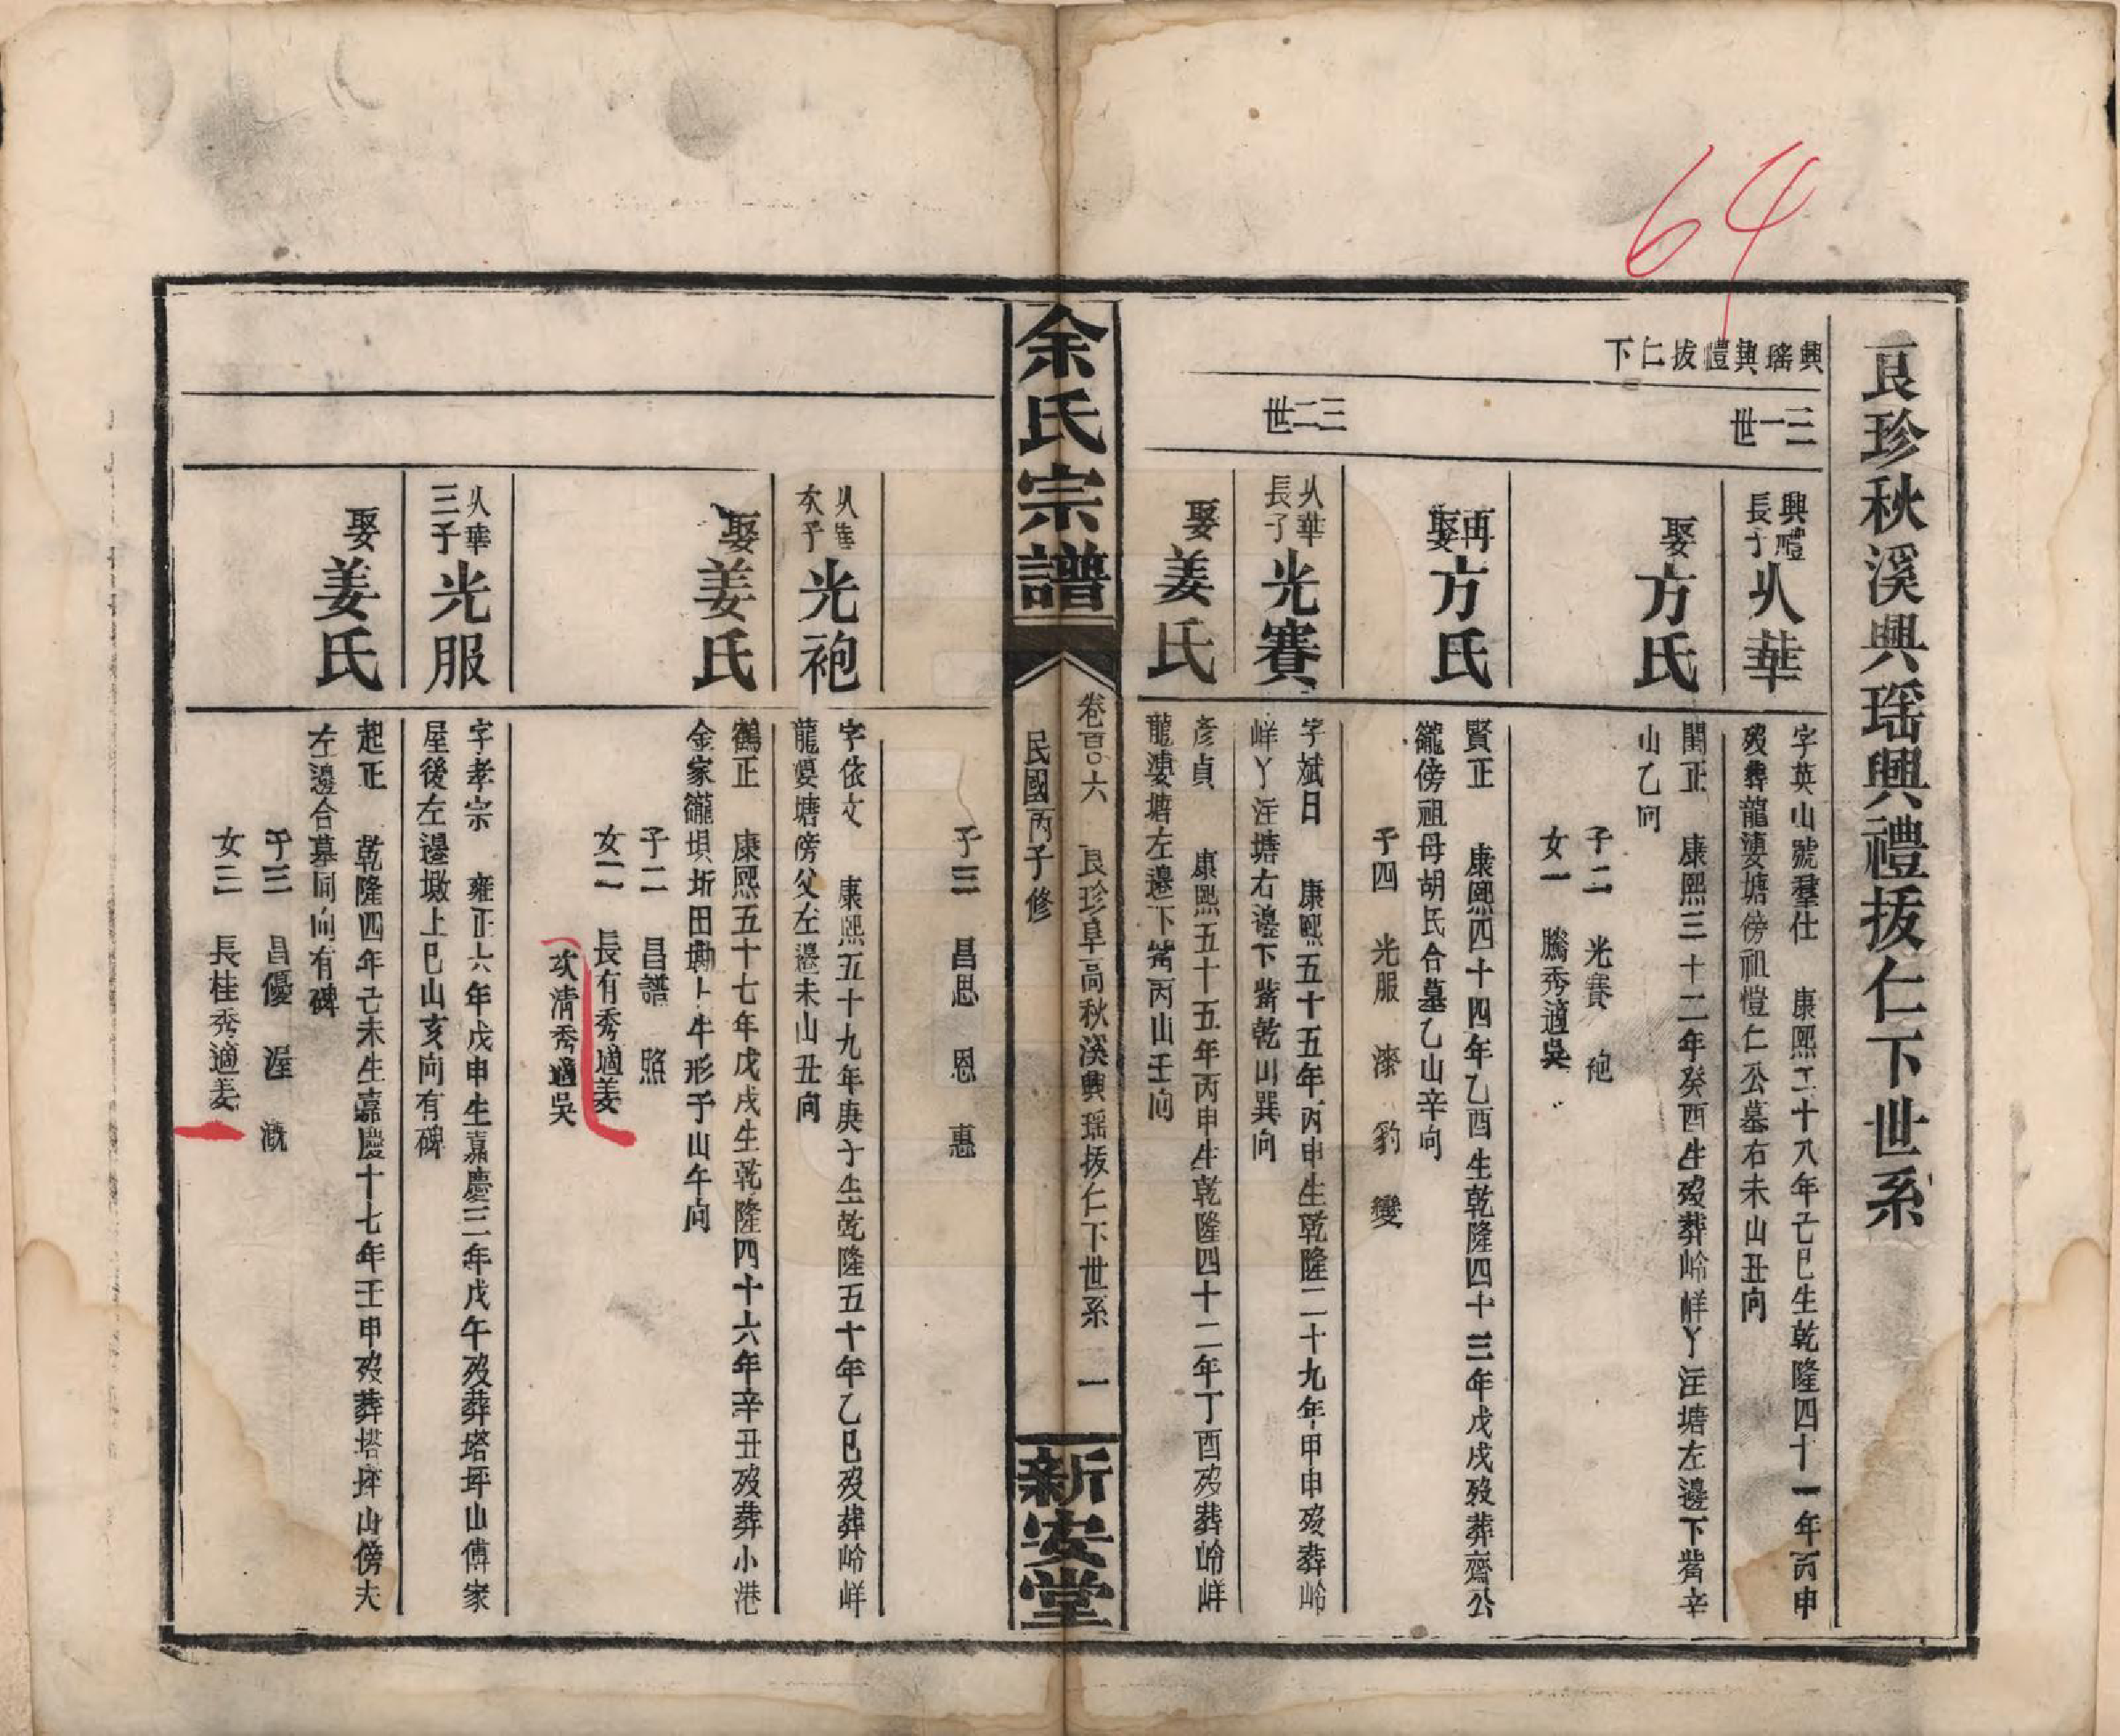 64
良珍秋溪興瑶興禮拔仁下世系
興瑤興禮拔仁下
三一世
興禮長子 㸚華
字英山號羣仕 康熙二十八年己巳生乾隆四十一年丙申
歿葬龍婆塘傍祖愷仁公墓右未山丑向
娶方氏
閨正 康熙三十二年癸酉生歿葬岭峰丫注塘左邊下嘴辛
山乙向
子二 光賽 袍
女一 騰秀適吳
再娶方氏
賢正 康熙四十四年乙酉生乾隆四十三年戊戌歿葬齋公
籠傍祖母胡氏合墓乙山辛向
子四 光服 漆 豹 變
三二世
華長子 光賽
字斌日 康熙五十五年丙申生乾隆二十九年甲申歿葬岭
峰丫注塘右邊下嘴乾山巽向
娶姜氏
彥貞 康熙五十五年丙申生乾隆四十二年丁酉歿葬岭峰
龍婆塘左邊下嘴丙山壬向
余氏宗譜
卷百六 良珍阜高秋溪興瑶拔仁下世系 一
民國丙子修
新安堂
子三 昌思 恩 惠
華次子 光袍
字依文 康熙五十九年庚子生乾隆五十年乙巳歿葬岭峰
龍婆塘傍父左邊未山丑向
娶姜氏
鶴正 康熙五十七年戊戌生乾隆四十六年辛丑歿葬小港
金家籠垻圻田墈上牛形子山午向
子二 昌譜 照
女二 長有秀適姜
次清秀適吳
華三子 光服
字孝宗 雍正六年戊申生嘉慶三年戊午歿葬塔坪山傅家
屋後左邊墩上巳山亥向有碑
娶姜氏
起正 乾隆四年己未生嘉慶十七年壬申歿葬塔坪山傍夫
左邊合墓同向有碑
子三 昌優 渥 溉
女三 長桂秀適姜